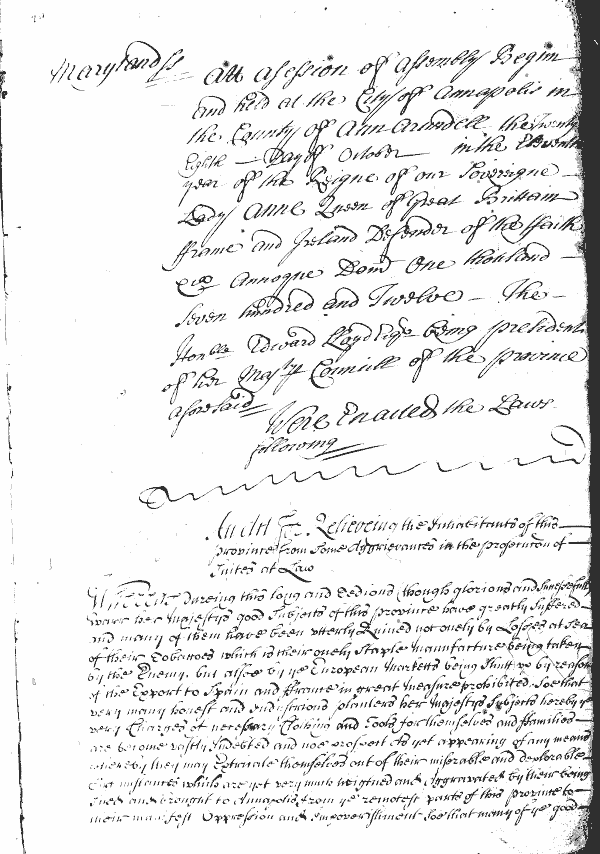 Maryland ss Att a session of Assembly Begun
and held at the City of Annapolis in
the County of Ann Arundell the Twenty
Eighth — Day of October — in the Eleventh
year of the Reigne of our Sovereigne —
Lady Anne Queen of Great Brittain
ffrance and Ireland Defender of the ffaith
Annoque Dom̃ One thousand —
Seven hundred and Twelve — The —
Honble Edward Lloyd Esqr being president
of her Majtys Councill of the province
aforesaid
Were Enacted the Laws
following
An Act for Relieveing the Inhabitants of this
province from some Aggrievances in the prosecution of
Suites at Law
Whereas dureing this long and tedious (though glorious and successfull
Warr her Majestys good Subjects of this province have greatly suffered
and many of them have been utterly Ruined not onely by Losses at Sea
of their Tobaccos which is their onely Staple Manufacture being taken
by the Enemy, but alsoe by ye European Marketts being Shutt up by reason
of the Export to Spain and ffrance in great measure prohibited. Soe that
very many honest and Industrious planters her Majestys Subjects hereby &
very Charges of necessary Cloathing and Tools for themselves and ffamilies
are become vastly Indebted and noe prospect as yet appearing of any means
whereby they may Extricate themselves out of their miserable and deplorable
Circumstances which are yet very much heigtned and Aggravated by their being
Sued and brought to Annapolis from ye remotest parts of this province to
their manifest Oppression and Impoverishment Soe that many of ye good